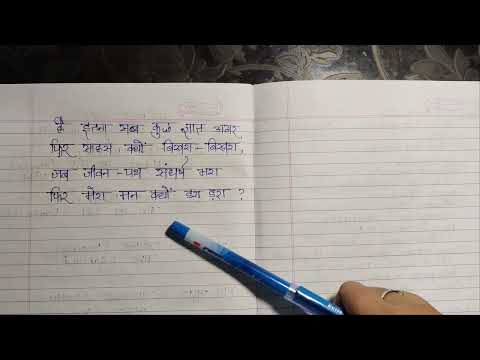 है इतना सब कुछ ज्ञात अगर,
फिर साहस क्यों बिखरा-बिखरा,
जब जीवन-पथ संघर्ष भरा
फिर मेरा मन क्यों डरा डरा ?